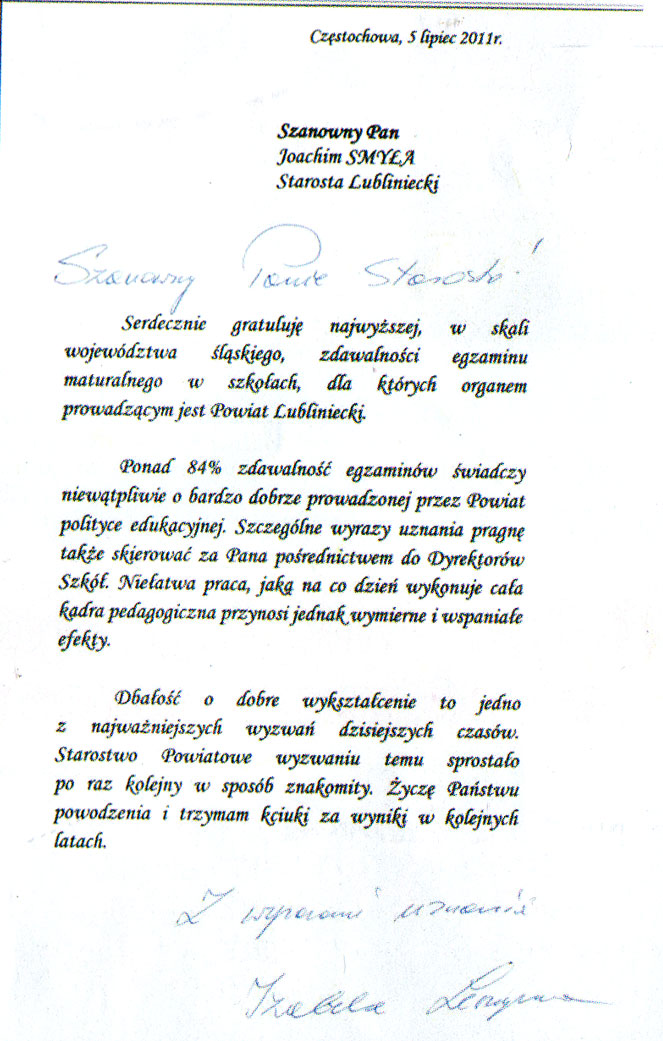 Częstochowa, 5 lipiec 2011r.
Szanowny Pan
Joachim SMYŁA
Starosta Lubliniecki
Szanowny Panie Starosto!
Serdecznie gratuluję najwyższej, w skali
województwa śląskiego, zdawalności egzaminu
maturalnego w szkołach, dla których organem
prowadzącym jest Powiat Lubliniecki.
Ponad 84% zdawalność egzaminów świadczy
niewątpliwie o bardzo dobrze prowadzonej przez Powiat
polityce edukacyjnej. Szczególne wyrazy uznania pragnę
także skierować za Pana pośrednictwem do Dyrektorów
Szkół. Niełatwa praca, jaką na co dzień wykonuje cała
kadra pedagogiczna przynosi jednak wymierne i wspaniałe
efekty.
Dbałość o dobre wykształcenie to jedno
z najważniejszych wyzwań dzisiejszych czasów.
Starostwo Powiatowe wyzwaniu temu sprostało
po raz kolejny w sposób znakomity. Życzę Państwu
powodzenia i trzymam kciuki za wyniki w kolejnych
latach.
Z wyrazami uznania
Izabela Leszczyna